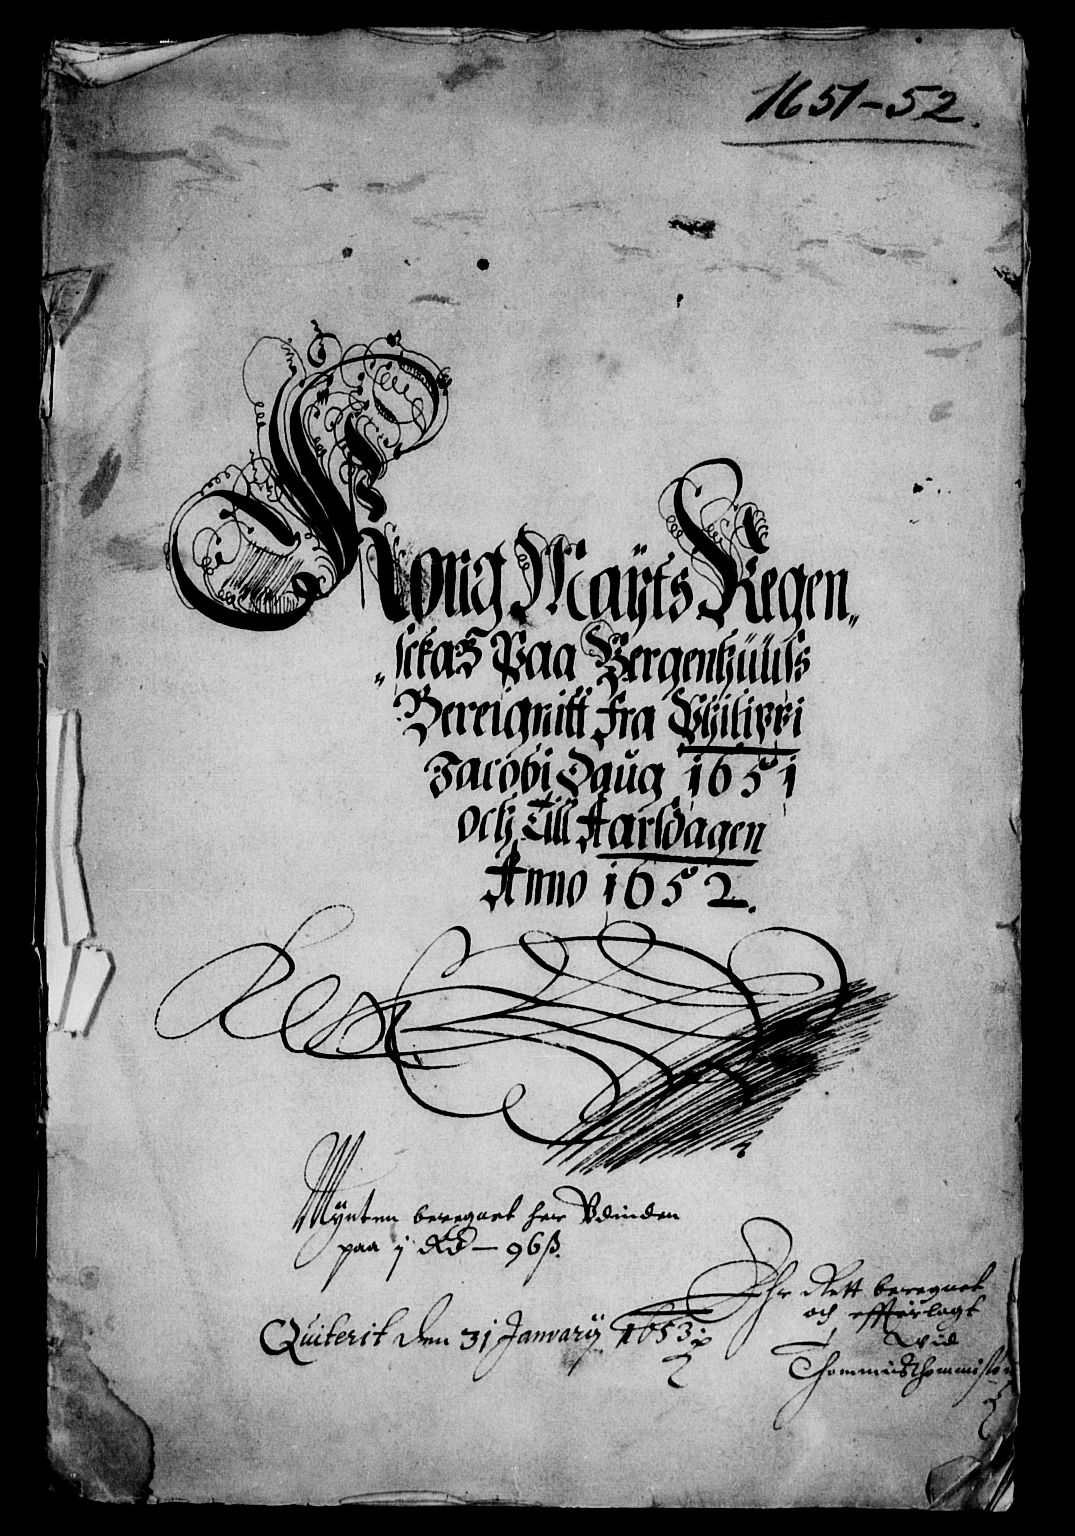 1651-52.
Konig Maÿts Regen„
„skaB Paa Bergenhüüss
Bereignitt fra Philippi
Jacobi Daug 1651
och Till Aarsdagen
Anno 1652.
Mÿnten beregnet her Vdinden
paa j Rd — 96 ß.
Quiterit den 31 Januarij 1653
Ehr Rett beregnet
och efftterlagt
Vid
Thommis Thommisen